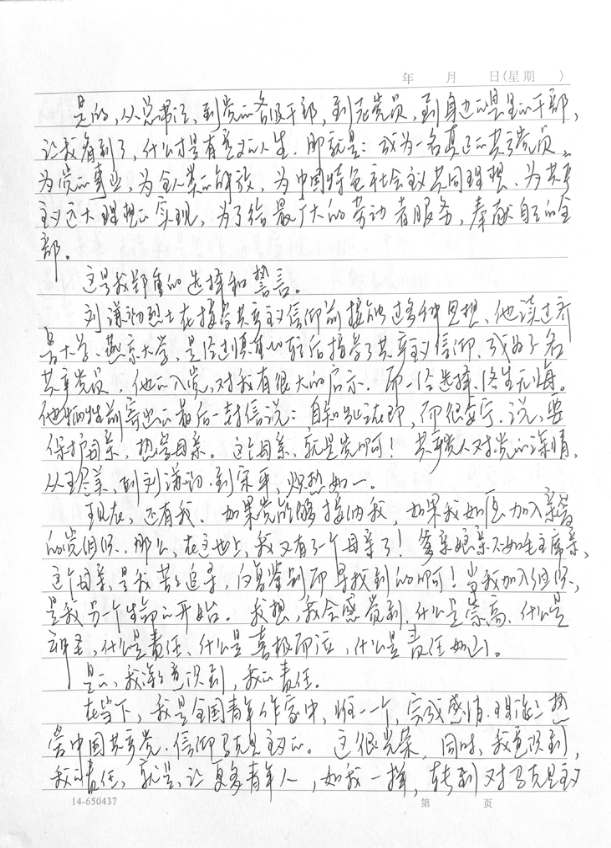 年 月 日(星期 )
是的,从总书记,到党的各级干部,到老党员,到身边的
让我看到了,什么才是有意义的人生.那就是:成为一名真正的共产党员,
为党的事业,为全人类的解放,为中国特色社会主义共同理想、为共产
主义远大理想的实现,为了给最广大的劳动者服务,奉献自己的全
部。
这是我郑重的选择和誓言。
刘谦初烈士在接受共产主义信仰前接触过多种思想、他读过齐
鲁大学、燕京大学,是经过慎重比较后接受了共产主义信仰、成为了一名
共产党员,他的入党,对我有很大的启示.而一经选择,终生无悔。
他牺牲前寄出的最后一封信说: 说,要
保护母亲,热爱母亲。这个母亲、就是党啊!共产党人对党的深情,
从王尽美,到刘谦初,到宋平,炽热如一.
现在,还有我.如果党能够接纳我,如果我如愿加入亲爱
的党组织.那么,在这世上,我又有了个母亲了!爹亲娘亲不如毛主席亲,
这个母亲,是我苦苦追寻, 鉴别而寻找到的啊!当我加入组织,
是我另一个生命的开始。我想,我会感觉到,什么是崇高、什么是
神圣,什么是责任、什么是喜极而泣,什么是责任如山.
是的,我深深意识到,我的责任.
在当下,我是全国青年作家中,唯一一个,完成感情、理论上热
爱中国共产党.信仰马克思主义的。这很光荣,同时,我意识到,
我的责任,就是,让更多青年人,如我一样,转到对马克思主义
14-650437 第 页